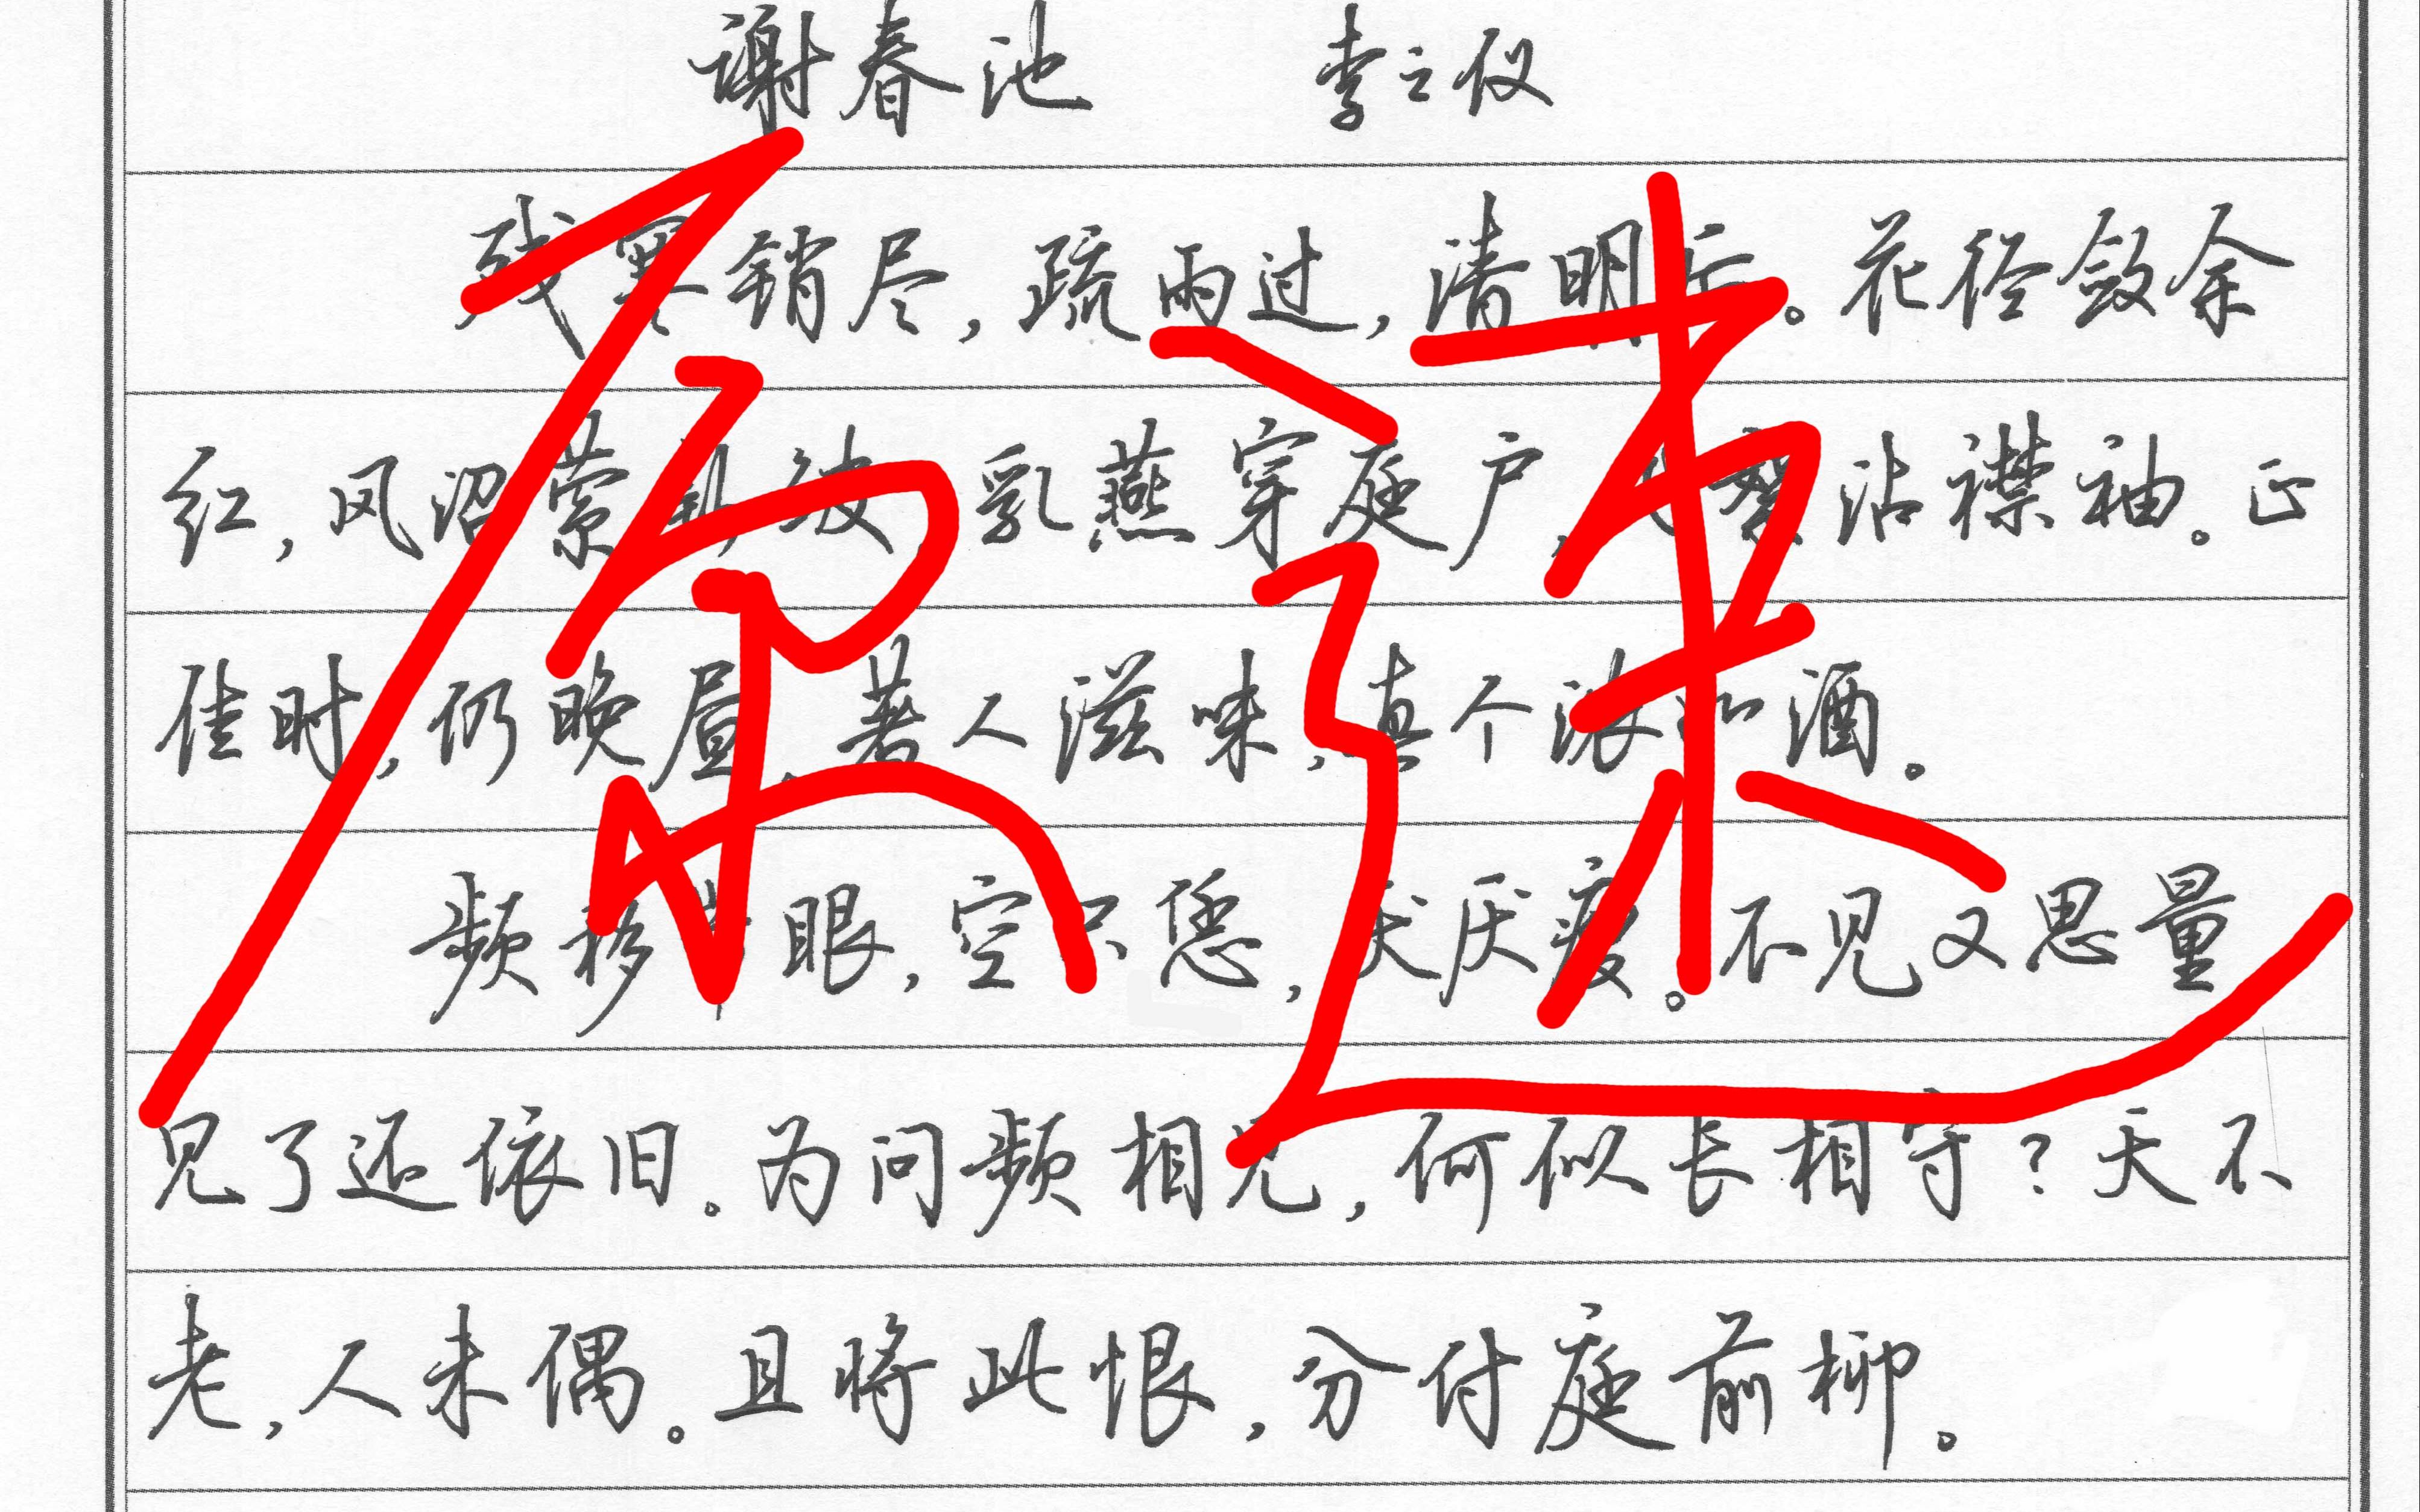 谢春池 李之仪
残寒销尽，疏雨过，清明后。花径敛余
红，风沼萦新皱，乳燕穿庭户，飞絮沾襟袖。正
佳时，仍晚昼，著人滋味，真个浓如酒。
频移带眼，空只恁，厌厌瘦。不见又思量
见了还依旧。为问频相见，何似长相守？天不
老，人未偶。且将此恨，分付庭前柳。
原速